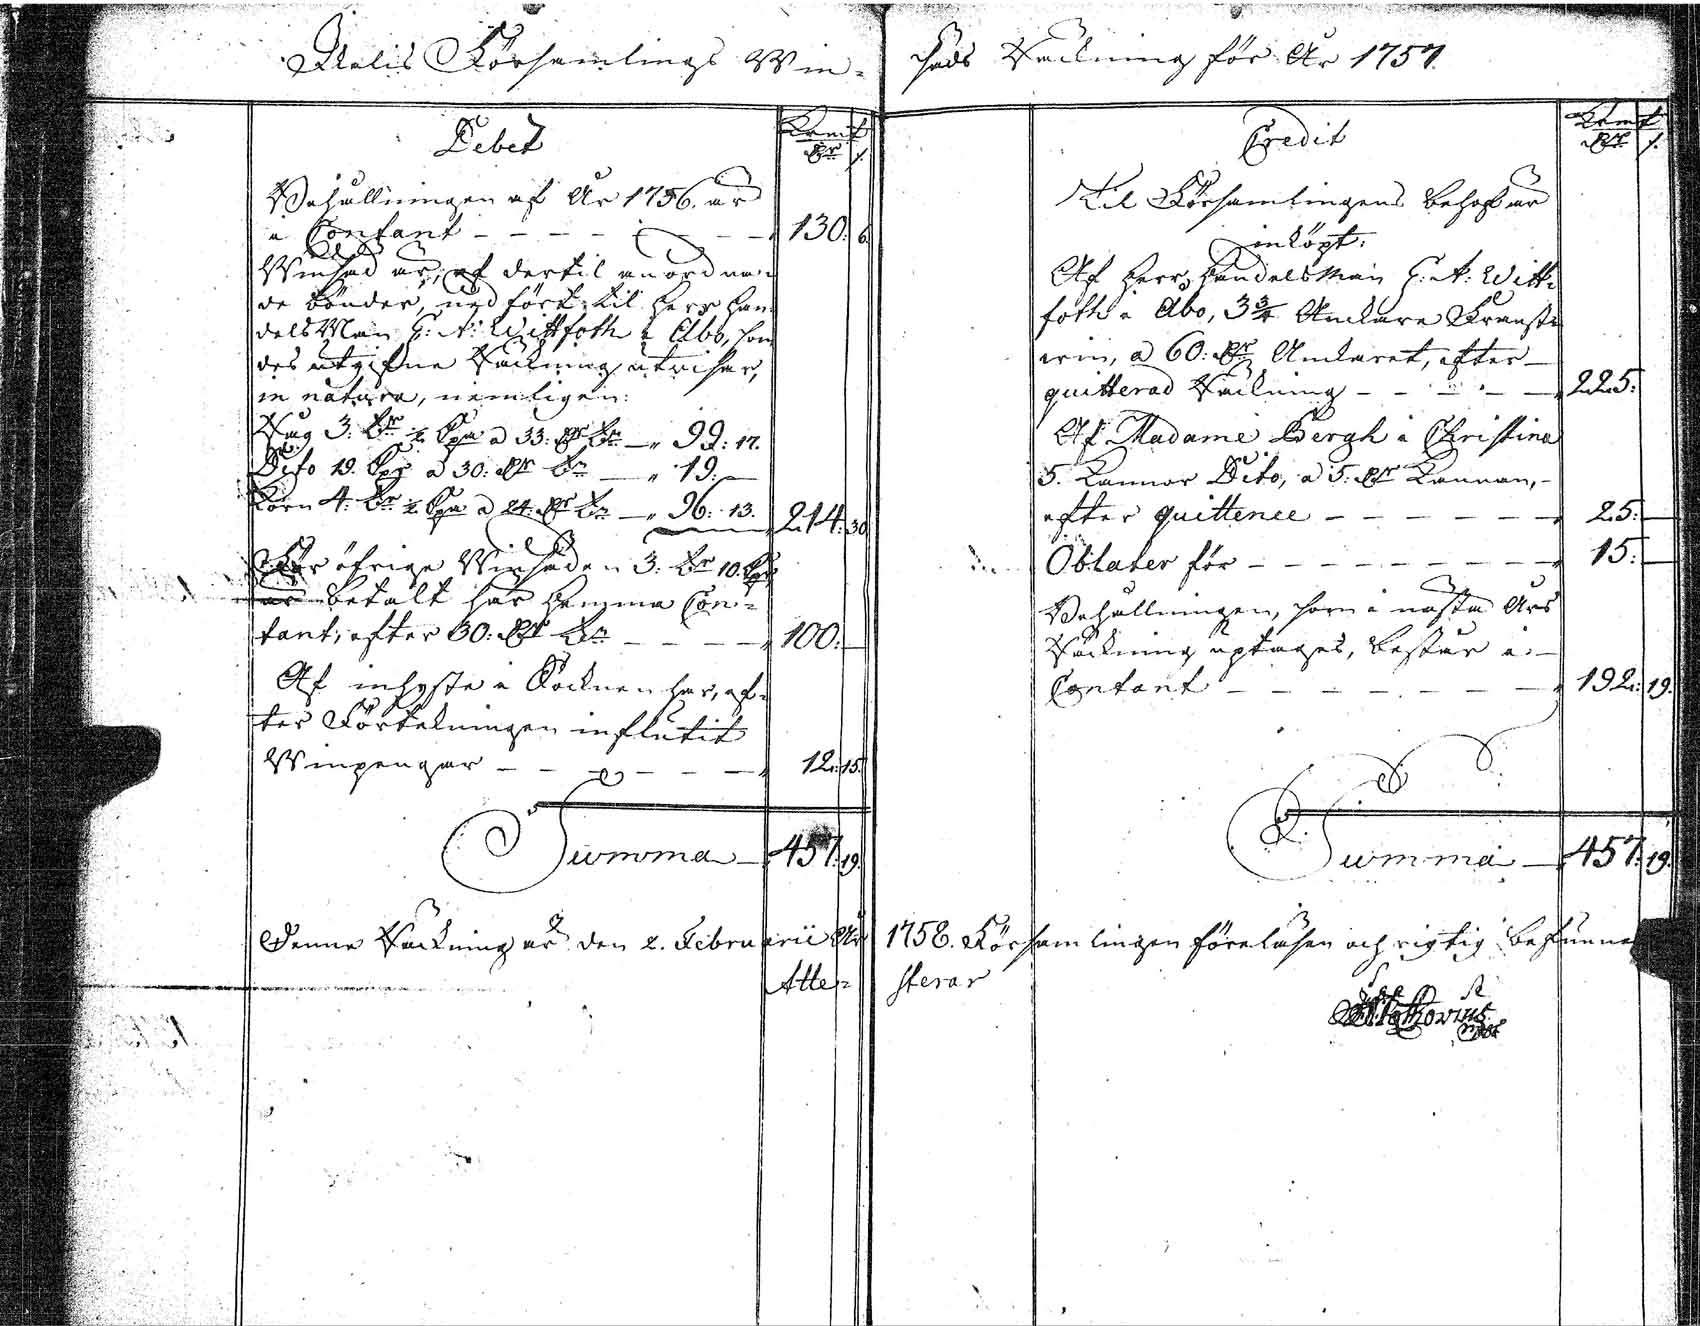 Församlings Win-
säds Räckning för År 1757.
Debet
Kopmt
Dr
Behållningen af År 1756. är
i Contant 130: 6.
Winsäd är, af dertil anordnan-
de bönder, nedfört til Herr Han-
delsMan Wittfoth i Åbo, som
des utgifne Räckning utvisar,
in natura, nemligen:
Råg 3. 33: 99: 17.
Dito 19. a 30: 19:
Korn 4. a 24: 96: 13. 214: 30
För öfrige Winsäden 3: 10.
är betalt här hemma Con-
tant, efter 30: 100:
Af inhyste i Socknen har, ef-
ter Förtekningen influtit
Winpengar 12: 15.
Summa 457: 19.
Credit
Til Församlingens behof är
inköpt:
Af Herr Handelsman Witt-
foth i Åbo, 3 3/4 Anckare Fransk
win, a 60: Anckaret, efter
quitterad Räckning 225:
Af Madame Bergh i Christina
5. Kannor Dito, a 5: Kannan,
efter quittence 25:
Oblater för 15:
Behållningen, som i nästa Års
Räckning uptages, består i
Contant 192: 19.
Summa 457: 19.
Denne Räckning är den 2. Februarii År 1758. Församlingen föreläsen och rigtig befunnen
Atte-
sterar